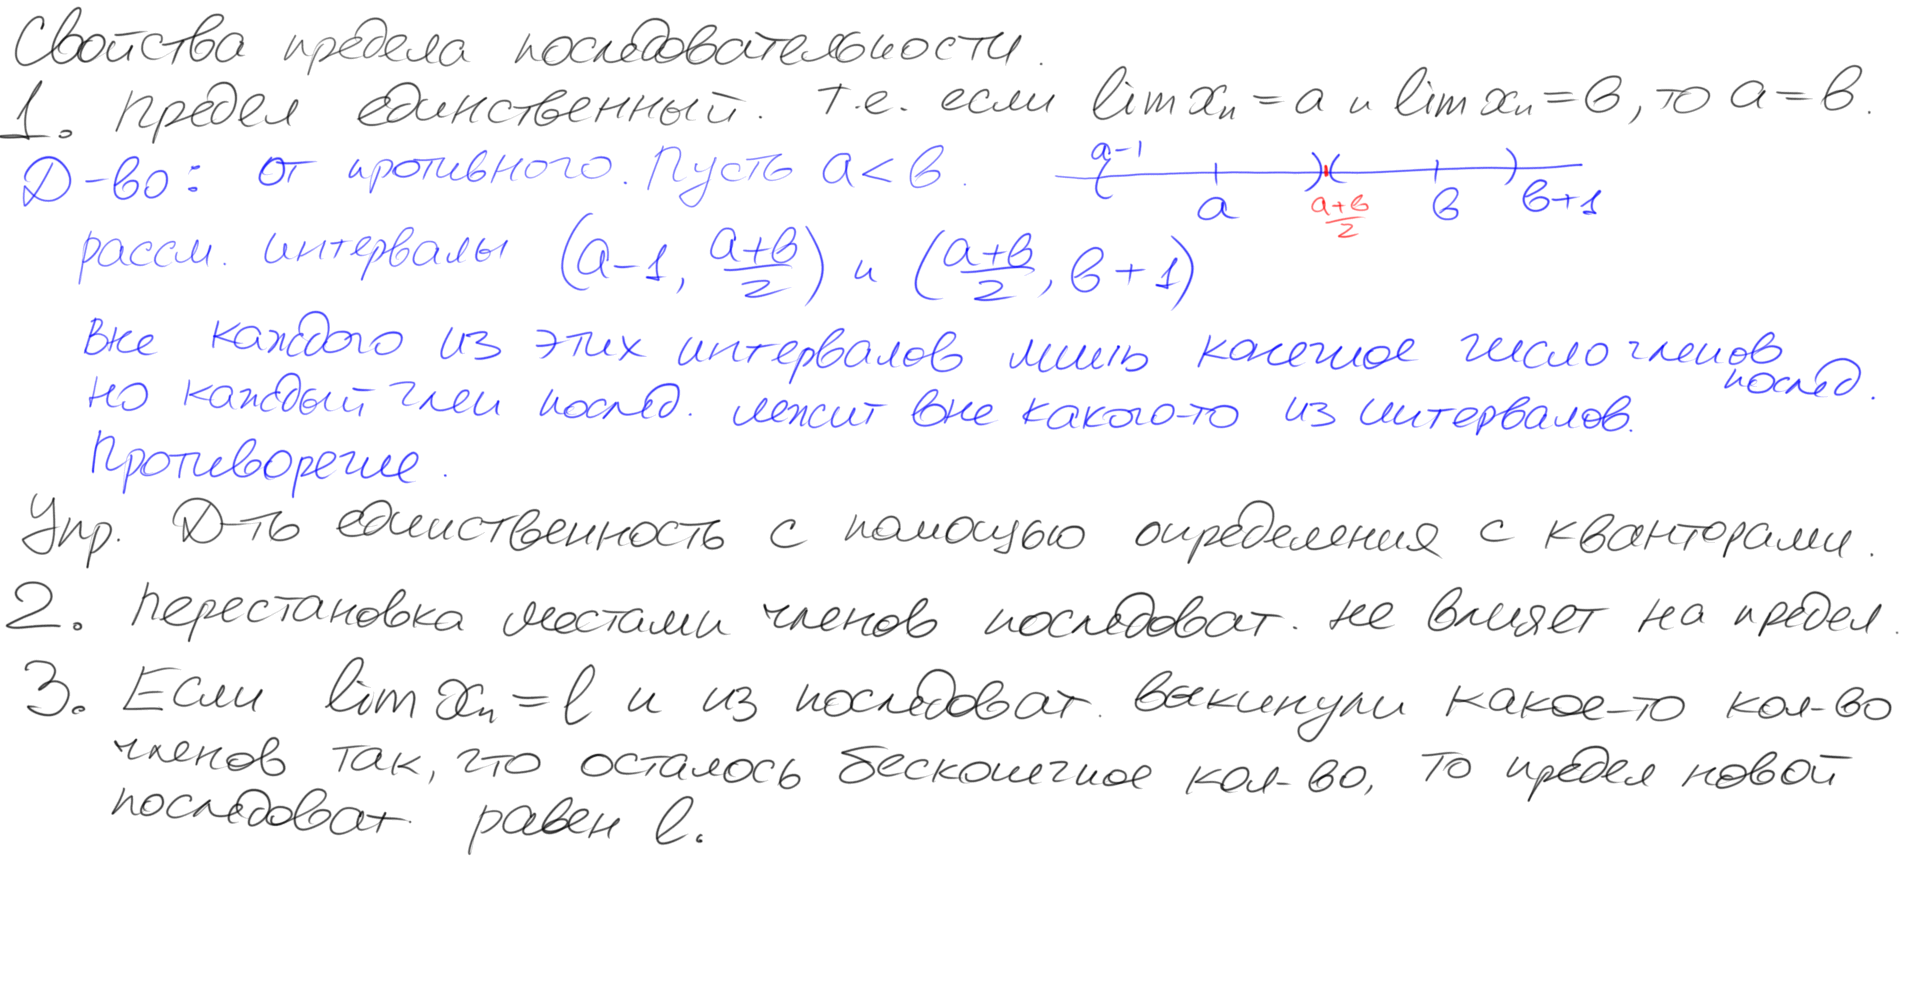 Свойства предела последовательности.
1. Предел единственный. Т.е. если lim xₙ = a и lim xₙ = в, то a = в.
Д-во: От противного. Пусть a < в.
a-1 a (a+в)/2 в в+1
рассм. интервалы (a-1, (a+в)/2) и ((a+в)/2, в+1)
Вне каждого из этих интервалов лишь конечное число членов послед.
но каждый член послед. лежит вне какого-то из интервалов.
Противоречие.
Упр. Д-ть единственность с помощью определения с кванторами.
2. Перестановка местами членов последоват. не влияет на предел.
3. Если lim xₙ = l и из последоват. выкинули какое-то кол-во
членов так, что осталось бесконечное кол-во, то предел новой
последоват. равен l.